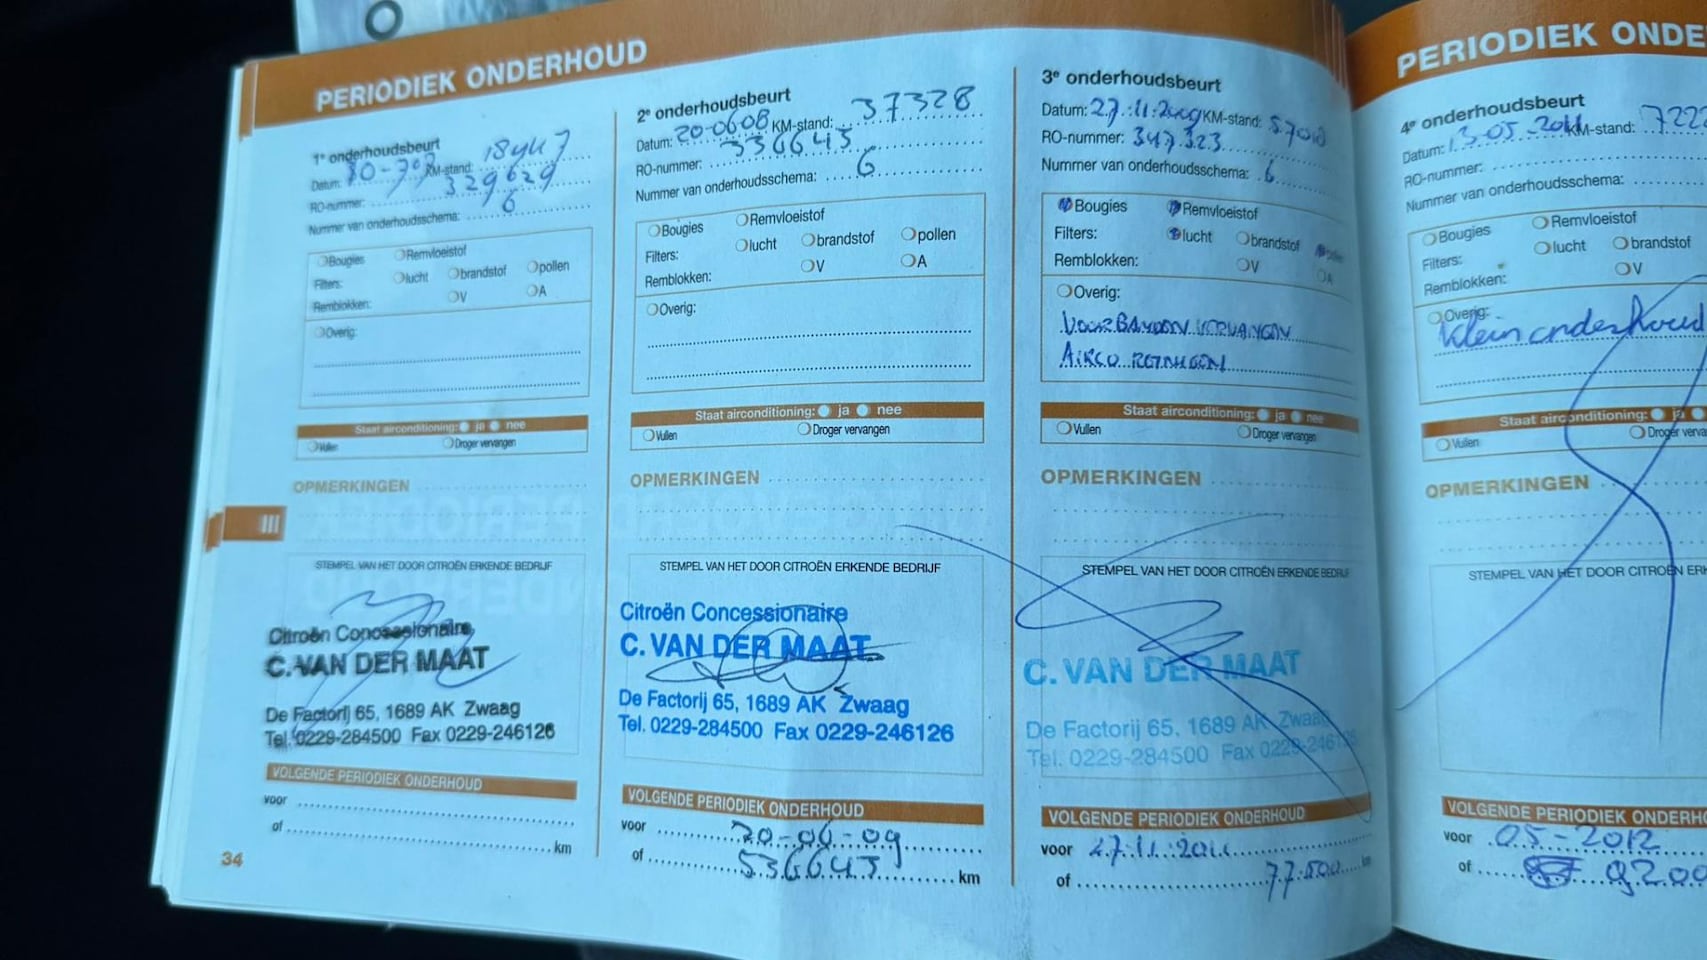 PERIODIEK ONDERHOUD
1e onderhoudsbeurt
Datum: KM-stand:
RO-nummer: 329629
Nummer van onderhoudsschema: 6
Bougies Remvloeistof
Filters: lucht brandstof pollen
Remblokken: V A
Overig:
Staat airconditioning: ja nee
Vullen Droger vervangen
OPMERKINGEN
III
STEMPEL VAN HET DOOR CITROËN ERKENDE BEDRIJF
Citroën Concessionaire
C. VAN DER MAAT
De Factorij 65, 1689 AK Zwaag
Tel. 0229-284500 Fax 0229-246126
VOLGENDE PERIODIEK ONDERHOUD
voor
of km
34
2e onderhoudsbeurt
Datum: 20-0608 KM-stand: 37328
RO-nummer: 336643
Nummer van onderhoudsschema: 6
Bougies Remvloeistof
Filters: lucht brandstof pollen
Remblokken: V A
Overig:
Staat airconditioning: ja nee
Vullen Droger vervangen
OPMERKINGEN
STEMPEL VAN HET DOOR CITROËN ERKENDE BEDRIJF
Citroën Concessionaire
C. VAN DER MAAT
De Factorij 65, 1689 AK Zwaag
Tel. 0229-284500 Fax 0229-246126
VOLGENDE PERIODIEK ONDERHOUD
voor 20-06-09
of 536643 km
3e onderhoudsbeurt
Datum: 27.11.2009 KM-stand:
RO-nummer: 347323
Nummer van onderhoudsschema: 6
Bougies Remvloeistof
Filters: lucht brandstof pollen
Remblokken: V A
Overig:
VOORBANDEN VERVANGEN
AIRCO REINIGEN
Staat airconditioning: ja nee
Vullen Droger vervangen
OPMERKINGEN
STEMPEL VAN HET DOOR CITROËN ERKENDE BEDRIJF
C. VAN DER MAAT
De Factorij 65, 1689 AK Zwaag
Tel. 0229-284500 Fax 0229-246126
VOLGENDE PERIODIEK ONDERHOUD
voor
of 77.500 km
PERIODIEK ONDE
4e onderhoudsbeurt
Datum: 13-05-2011 KM-stand: 722
RO-nummer:
Nummer van onderhoudsschema:
Bougies Remvloeistof
Filters: lucht brandstof
Remblokken: V
Overig:
Klein onderhoud
Staat airconditioning: ja
Vullen Droger verva
OPMERKINGEN
STEMPEL VAN HET DOOR CITROËN ERK
VOLGENDE PERIODIEK ONDERHO
voor 05-2012
of 9200